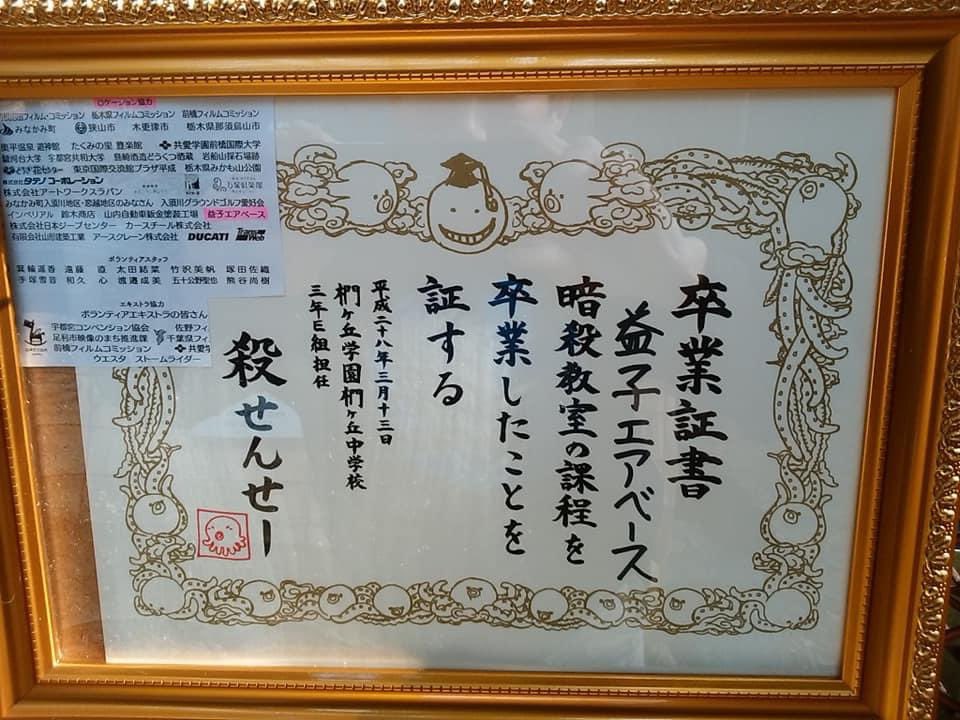 卒業証書
益子エアベース
暗殺教室の課程を
卒業したことを
証する
平成二十八年三月十三日
椚ヶ丘学園椚ヶ丘中学校
三年E組担任
殺せんせー
ロケーション協力
フィルム・コミッション 栃木県フィルムコミッション 前橋フィルムコミッション
みなかみ町 狭山市 木更津市 栃木県那須烏山市
奥平温泉 遊神館 たくみの里 豊楽館 共愛学園前橋国際大学
駿河台大学 宇都宮共和大学 島崎酒造どうくつ酒蔵 岩船山採石場跡
とちぎ花センター 東京国際交流館プラザ平成 栃木県みかも山公園
株式会社タテノコーポレーション
株式会社アートワークスラパン
みなかみ町入須川地区・恋越地区のみなさん 入須川グラウンドゴルフ愛好会
インペリアル 鈴木商店 山内自動車鈑金塗装工場 益子エアベース
株式会社日本ジープセンター カースチール株式会社
有限会社山形建築工業 アースクレーン株式会社 DUCATI Trans Web
ボランティアスタッフ
箕輪遥香 遠藤 直 太田結菜 竹沢美帆 塚田佐織
手塚雪音 和久 心 渡邉成美 五十公野聖也 熊谷尚樹
エキストラ協力
ボランティアエキストラの皆さん
宇都宮コンベンション協会 佐野フィ
足利市映像のまち推進課 千葉県フィ
前橋フィルムコミッション 共愛学
ウエスタ ストームライダー